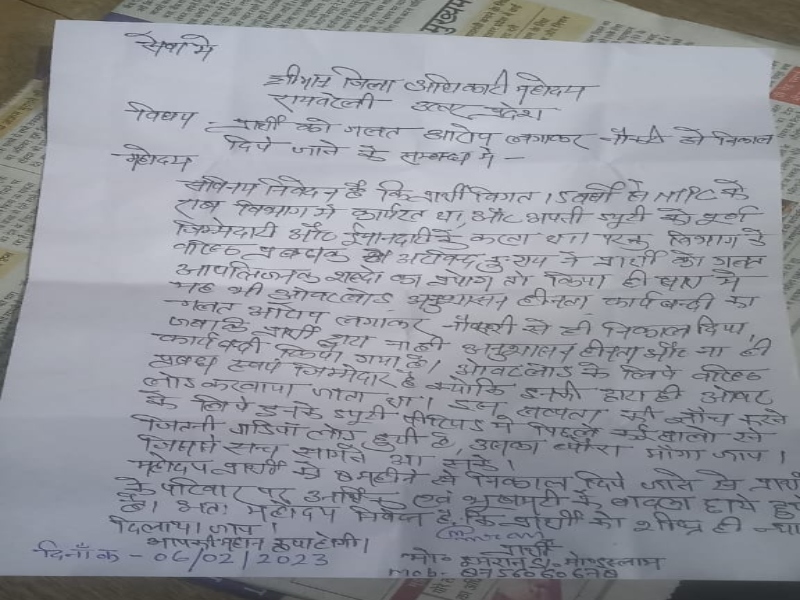 सेवा में
श्रीमान जिला अधिकारी महोदय
रायबरेली उत्तर प्रदेश
विषय - प्रार्थी को गलत आरोप लगाकर नौकरी से निकाल
दिये जाने के सम्बन्ध में -
महोदय
सविनय निवेदन है कि प्रार्थी विगत 15 वर्षों से NTPC के
राख विभाग में कार्यरत था, और अपनी ड्यूटी को पूर्ण
जिम्मेदारी और ईमानदारी से करता था। परन्तु विभाग के
वरिष्ठ प्रबन्धक अरविन्द कु॰ राय ने प्रार्थी को गलत
आपत्तिजनक शब्दो का प्रयोग तो किया ही साथ में
यह भी ओवरलोड अनुशासन हीनता कार्यबन्दी का
गलत आरोप लगाकर नौकरी से ही निकाल दिया,
जबकि प्रार्थी द्वारा ना ही अनुशासन हीनता और ना ही
कार्यबन्दी किया गया है। ओवरलोड के लिये वरिष्ठ
प्रबन्धक स्वयं जिम्मेदार है क्योकि इनके द्वारा ही ओवर
लोड करवाया जाता था। इस सत्यता की जाँच करने
के लिये इनके ड्यूटी पीरियड में पिछले कई सालो से
जितनी गाडियाँ लोड हुयी है, उसका ब्यौरा मांगा जाय।
जिससे सच सामने आ सके।
महोदय प्रार्थी को 8 महीने से निकाल दिये जाने से प्रार्थी
के परिवार पर आर्थिक एवं भुखमरी के बादल छाये हुये
है। अतः महोदय निवेदन है कि प्रार्थी को शीघ्र ही न्या
दिलाया जाय।
आपकी महान कृपा होगी।
प्रार्थी
दिनाँक - 06/02/2023
मो॰ इमरान s/o मो॰ इस्लाम
Mob-